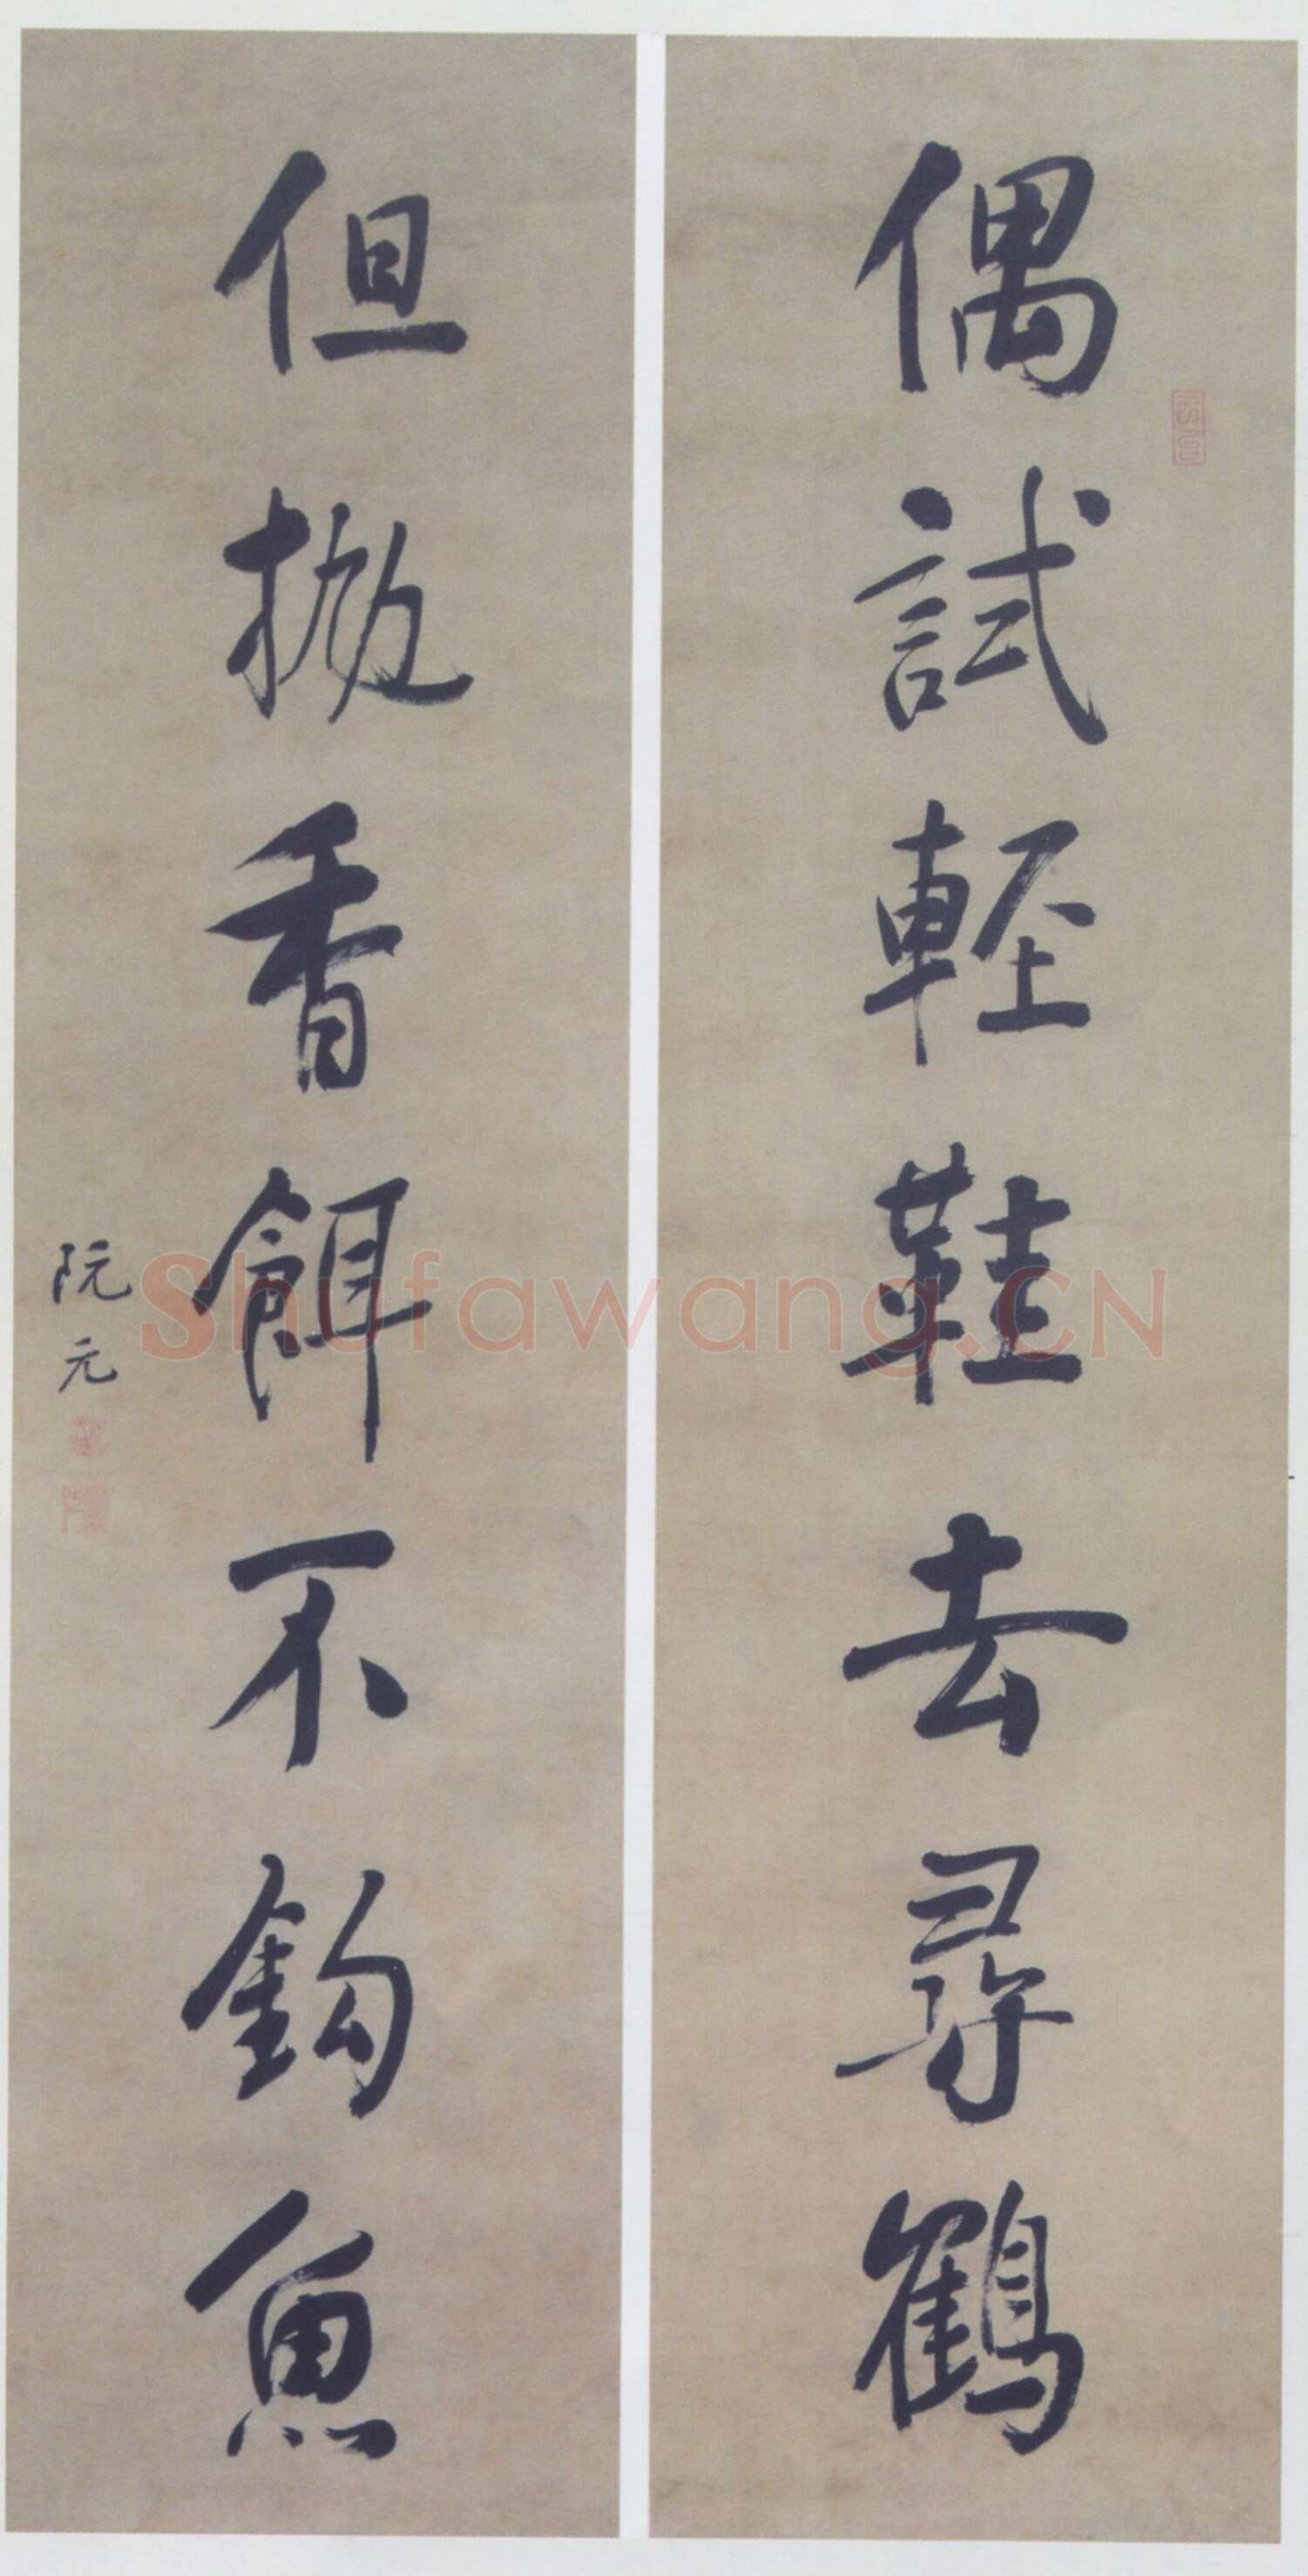 偶試輕鞋去尋鶴
但拋香餌不鈎魚
阮元
Shufawang.CN